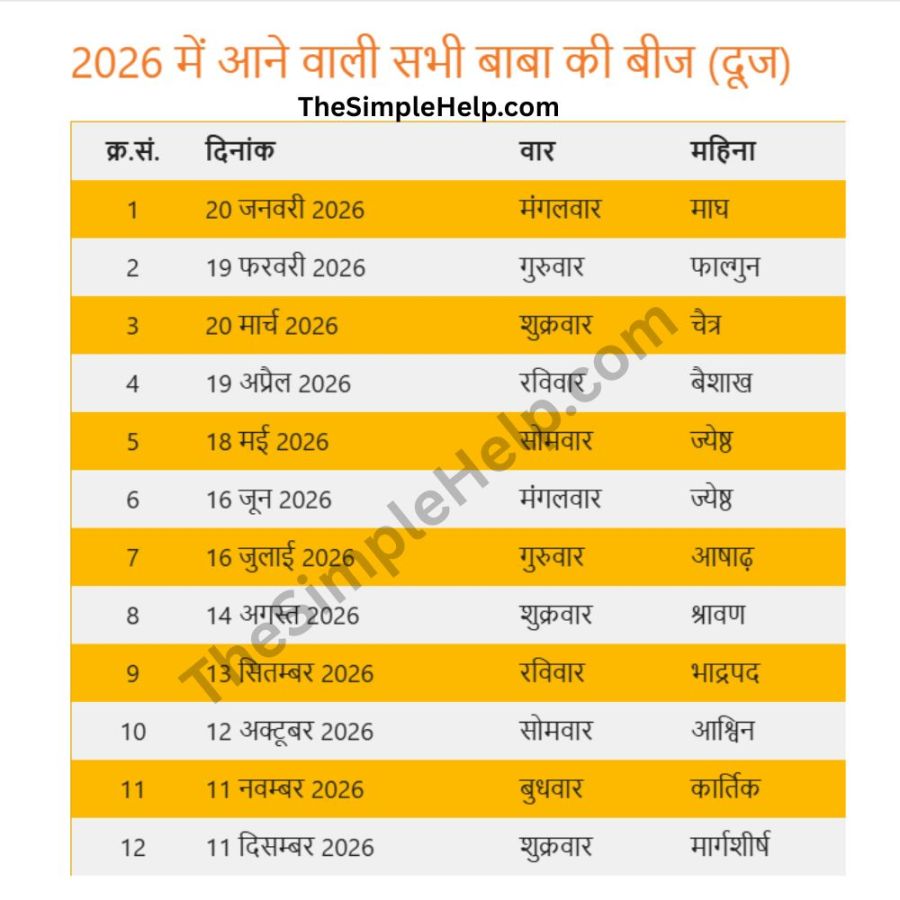 2026 में आने वाली सभी बाबा की बीज (दूज)
TheSimpleHelp.com
क्र.सं. दिनांक वार महिना
1 20 जनवरी 2026 मंगलवार माघ
2 19 फरवरी 2026 गुरुवार फाल्गुन
3 20 मार्च 2026 शुक्रवार चैत्र
4 19 अप्रैल 2026 रविवार बैशाख
5 18 मई 2026 सोमवार ज्येष्ठ
6 16 जून 2026 मंगलवार ज्येष्ठ
7 16 जुलाई 2026 गुरुवार आषाढ़
8 14 अगस्त 2026 शुक्रवार श्रावण
9 13 सितम्बर 2026 रविवार भाद्रपद
10 12 अक्टूबर 2026 सोमवार आश्विन
11 11 नवम्बर 2026 बुधवार कार्तिक
12 11 दिसम्बर 2026 शुक्रवार मार्गशीर्ष
TheSimpleHelp.com